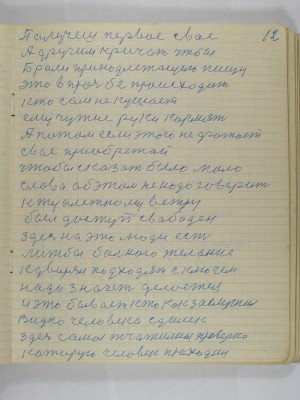 12
Получеш первое свае
А другим кричат чтобы
Брали принодлежащую пищу
это впроч бе происходит
кто сам не кушает
ему чужие руки кормят
А потом если этого не
свае приобретай
чтобы сказат было мало
слова об этом не надо говорит
к туалетному ветру
был доступ свабоден
здес на это люди ест
Литбы болного желание
К двирям подходят с ключем
надо значет делоется
и это бывает кто как
видно человека сдилек
здес самая проверка
каторую человек праходил